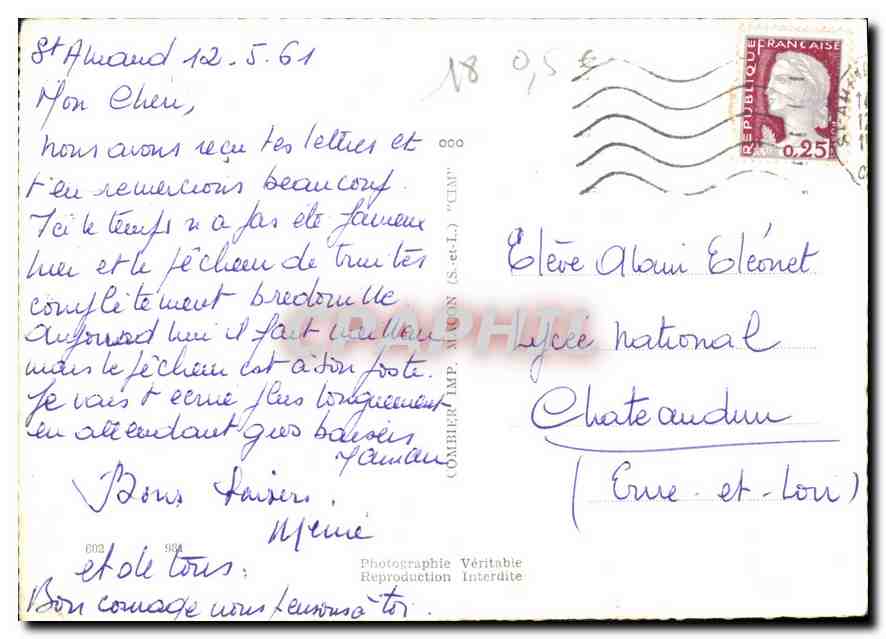 St Amand 12.5.61
Mon Chéri,
nous avons reçu tes lettres et
t'en remercions beaucoup.
Ici le temps n'a pas été fameux
hier et le pêcheur de truites
complètement bredouille
aujourd'hui il fait meilleur
mais le pêcheur est à son poste.
Je vais t'écrire plus longuement
en attendant gros baisers
Maman
Bons baisers.
Mémé
et de tous.
Bon courage nous pensons à toi.
602 984
18 0,5 €
COMBIER IMP. MACON (S.-et-L.) "CIM"
Photographie Véritable
Reproduction Interdite
REPUBLIQUE FRANCAISE
0,25
ST AMAN
CPAPHIL
Elève Alain Eléonet
Lycée National
Chateaudun
(Eure-et-Loir)